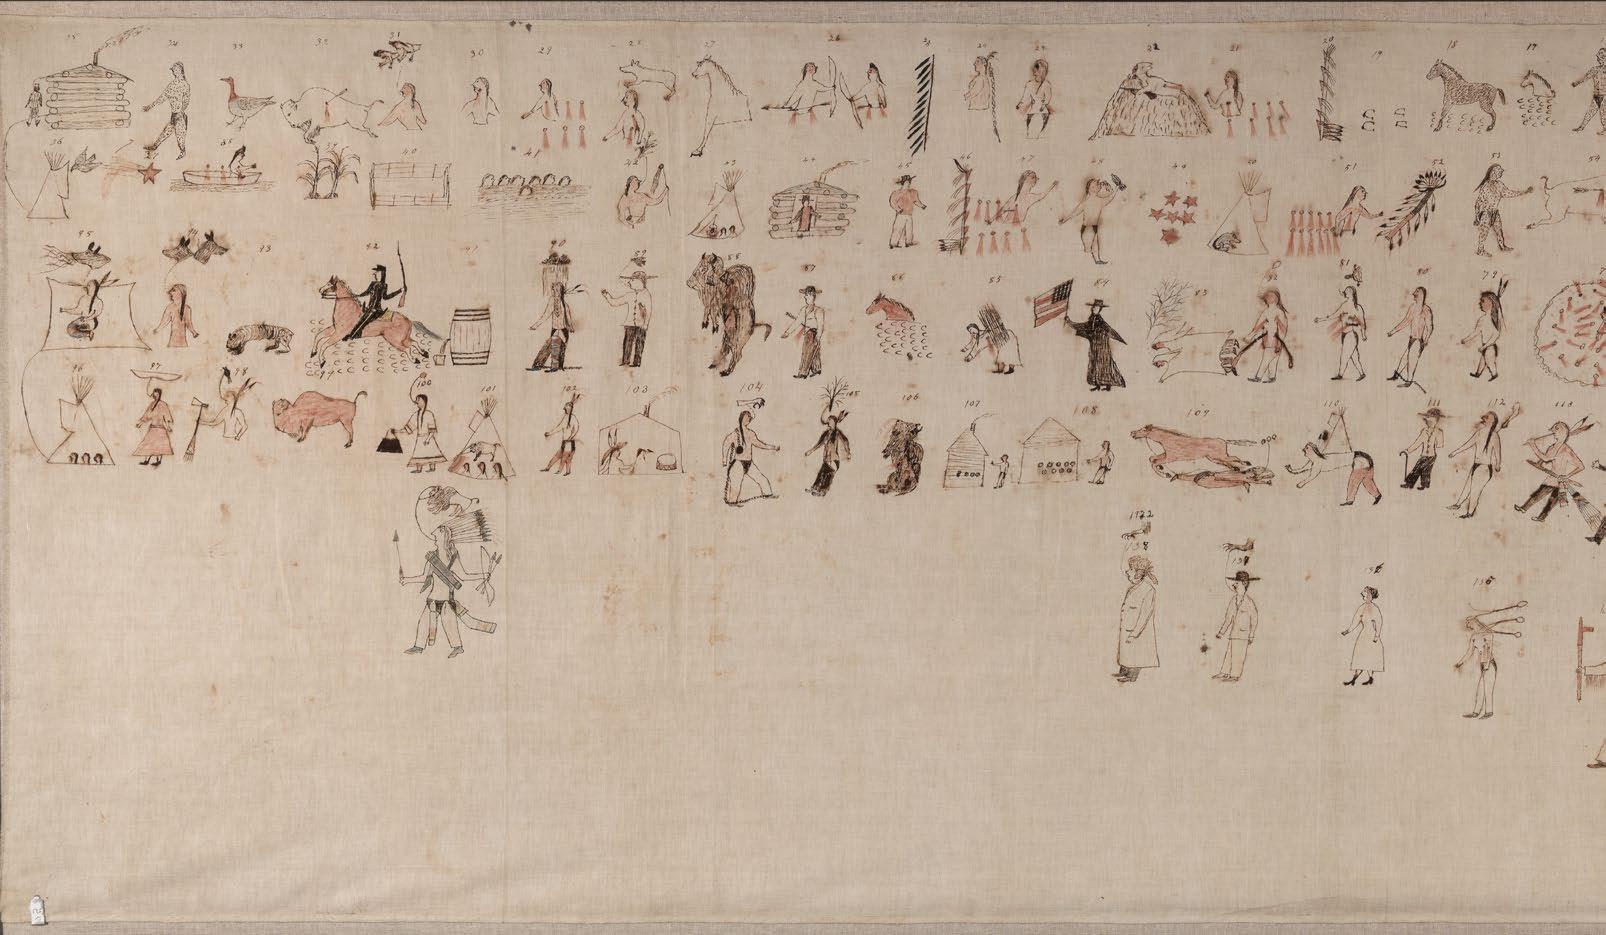 35 34 33 32 31 30 29 28 27 26 25 24 23 22 21 20 19 18 17
36 37 38 39 40 41 42 43 44 45 46 47 48 49 50 51 52 53 54
95 94 93 92 91 90 89 88 87 86 85 84 83 82 81 80 79
96 97 98 99 100 101 102 103 104 105 106 107 108 109 110 111 112 113
1922
138 137 136 135